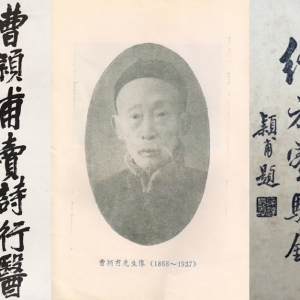 曹穎甫賣詩行醫
先生像 (1868～1937)
穎甫題